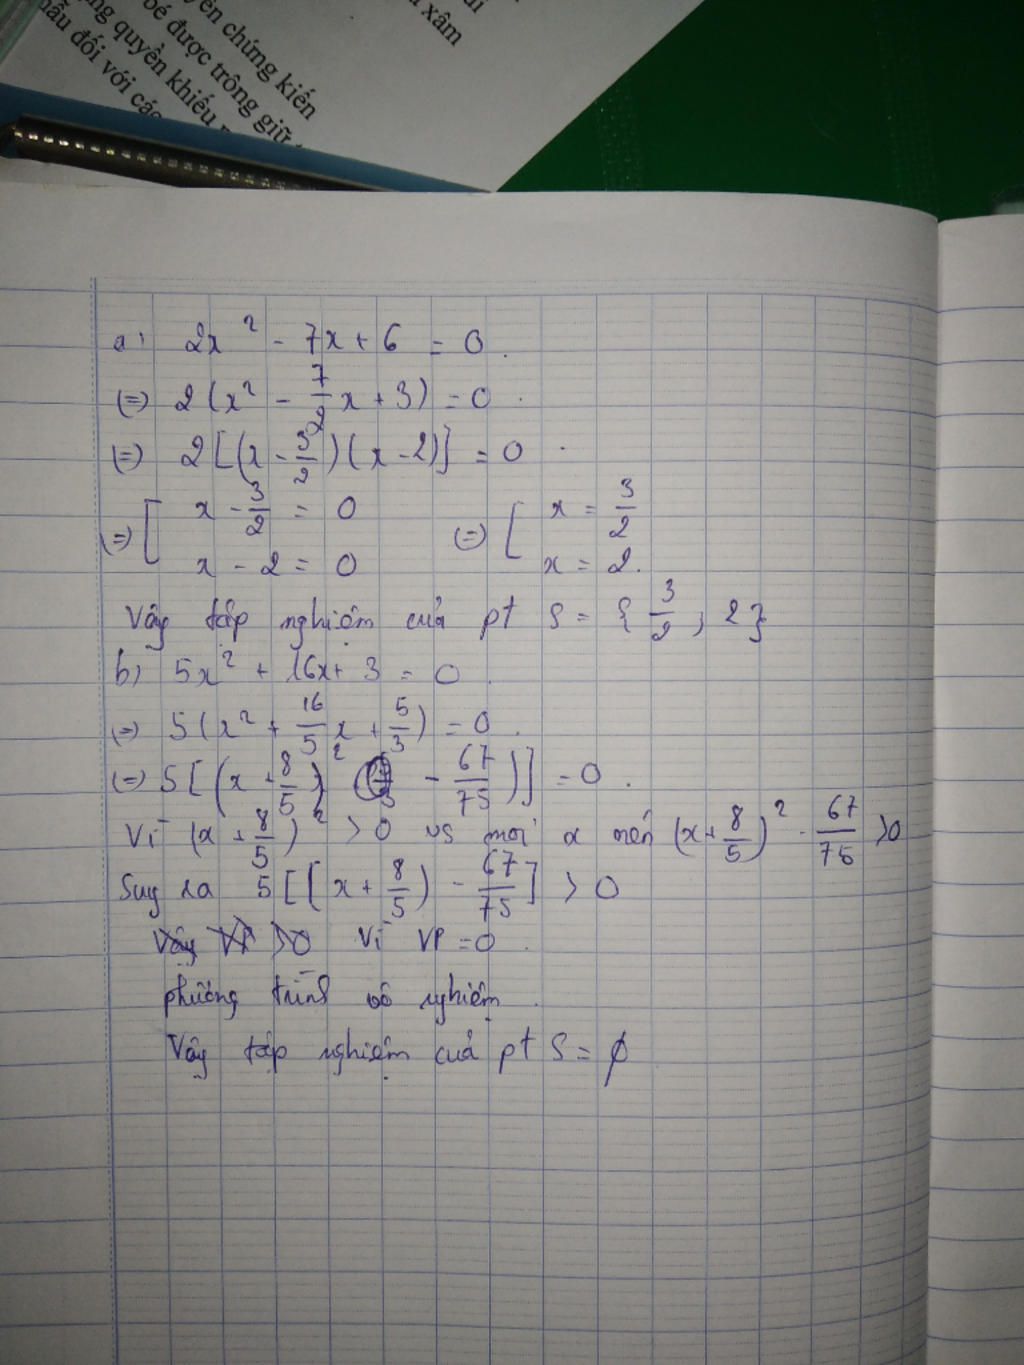 ui
xâm
yền chứng kiến
bé được trông giữ
ng quyền khiếu
mẫu đối với các
a) 2x² - 7x + 6 = 0.
(=) 2(x² - 7/2 x + 3) = 0.
(=) 2[(x - 3/2)(x - 2)] = 0.
(=) [ x - 3/2 = 0 (=) [ x = 3/2
x - 2 = 0 x = 2.
Vậy tập nghiệm của pt S = {3/2; 2}
b) 5x² + 16x + 3 = 0.
(=) 5(x² + 16/5 x + 5/3) = 0.
(=) 5[(x + 8/5)² - 67/75)] = 0.
Vì (x + 8/5)² > 0 vs mọi x nên (x + 8/5)² - 67/75 > 0
Suy ra 5[(x + 8/5) - 67/75] > 0
Vậy VP > 0 Vì VP = 0.
phương trình vô nghiệm.
Vậy tập nghiệm của pt S = ∅